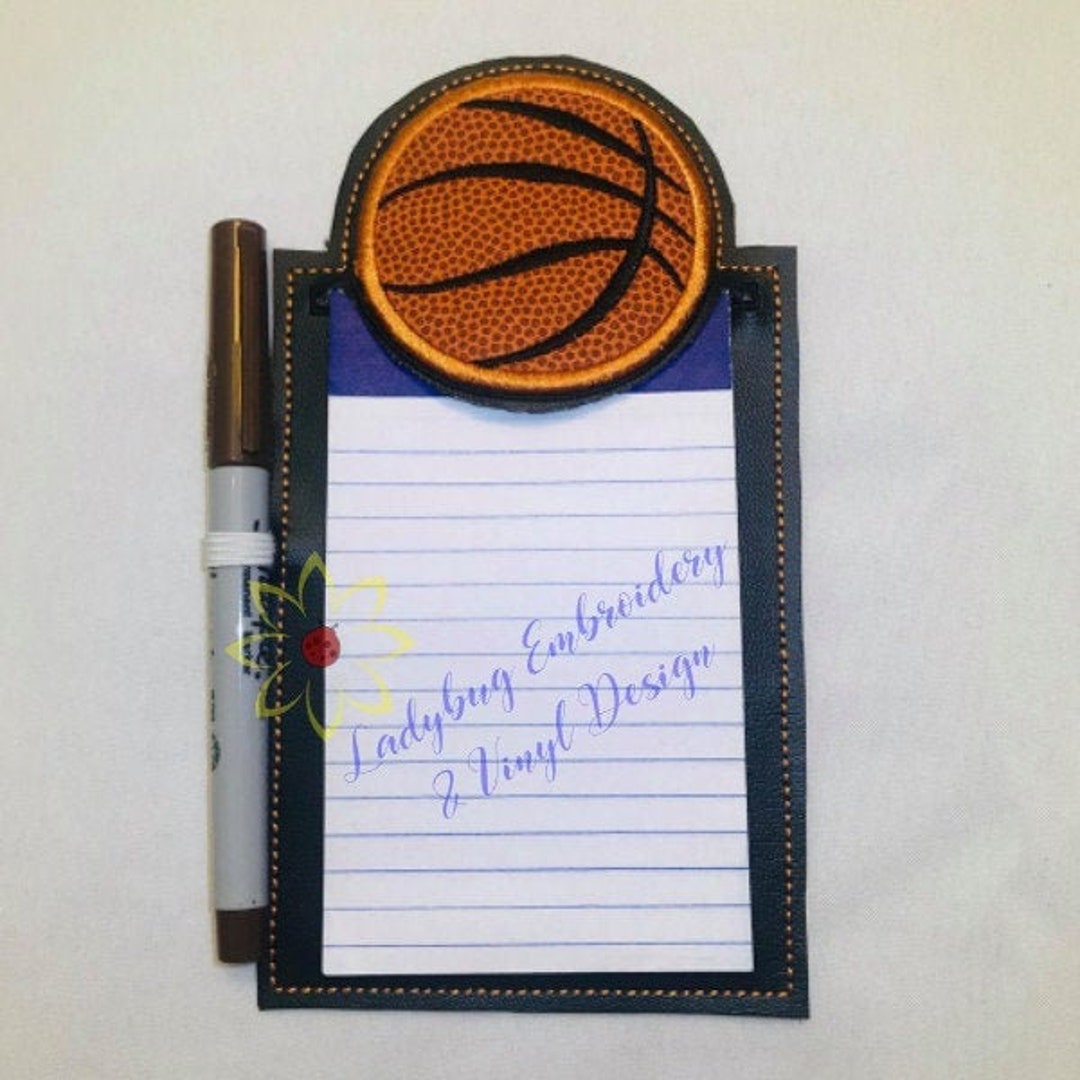 Ladybug Embroidery
& Vinyl Design